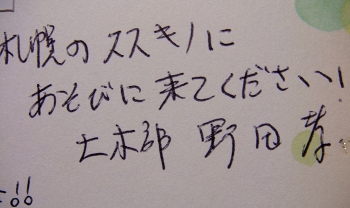 札幌のススキノに
あそびに来てください!
土木部 野田 孝
!!